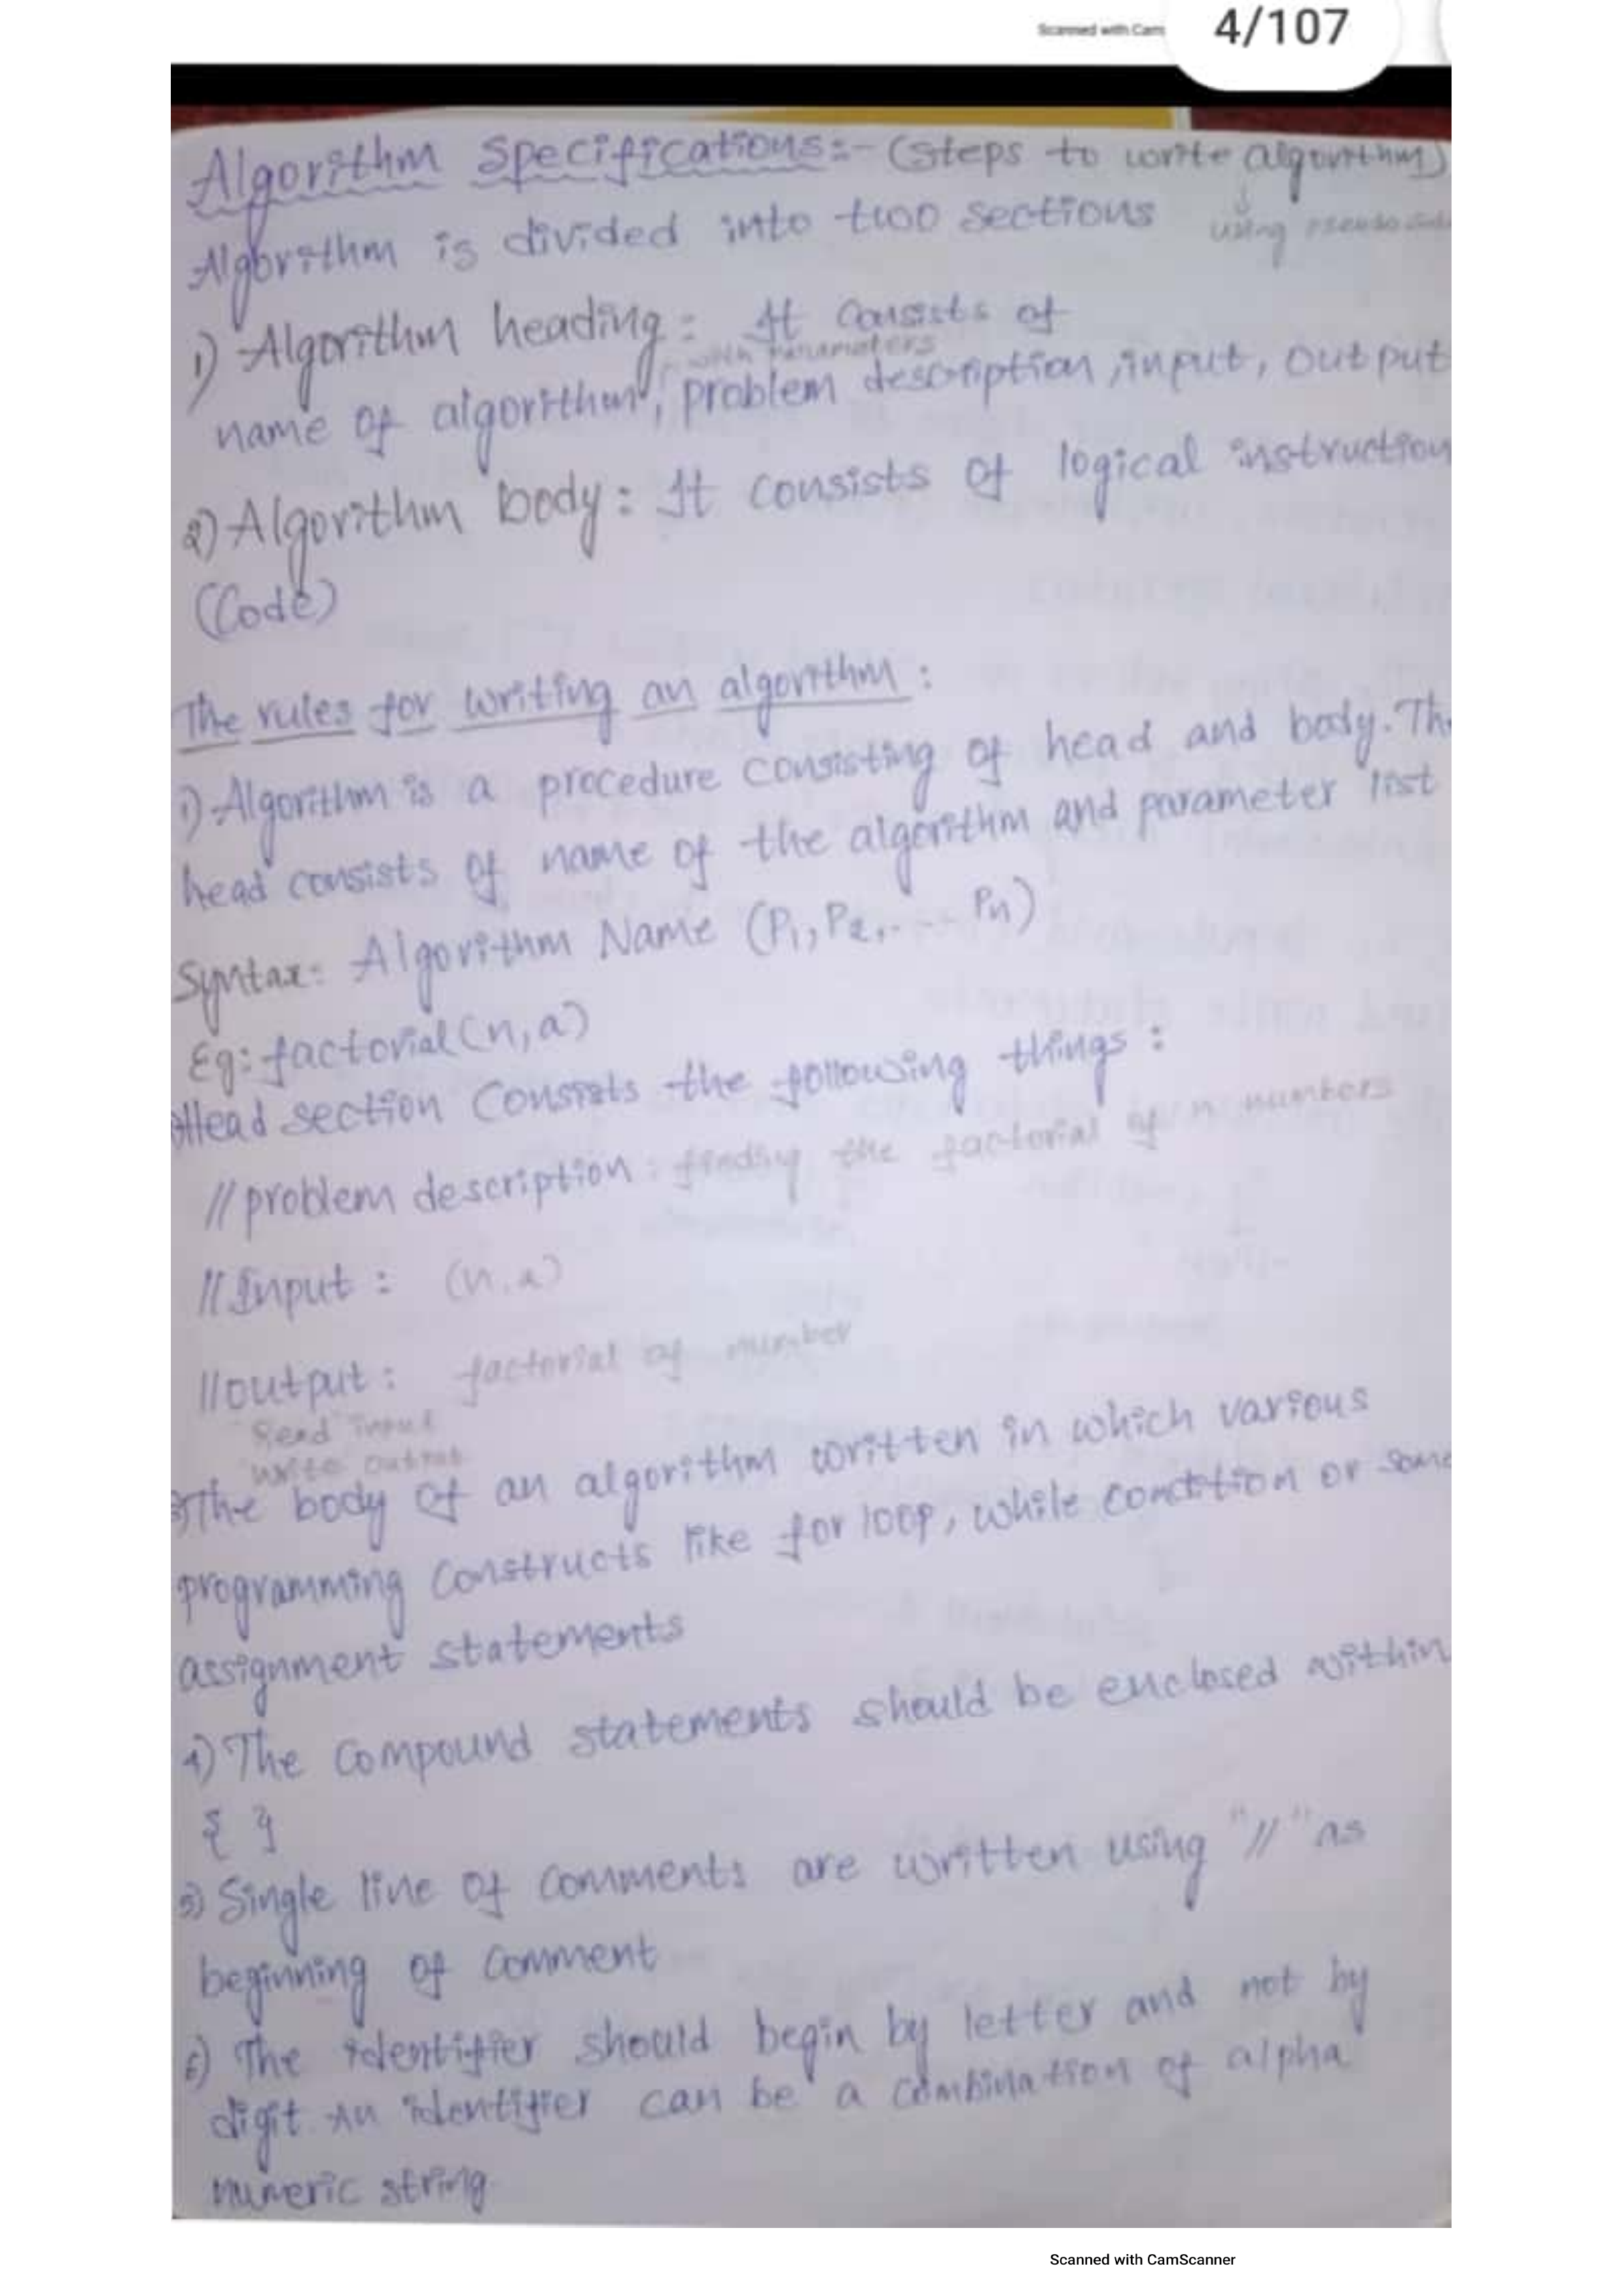 Scanned with Cam
4/107
Algorithm Specifications:- (steps to write algorithm)
using pseudo
Algorithm is divided into two sections
1) Algorithm heading: It consists of
with parameters
name of algorithm, problem description, input, output
2) Algorithm body: It consists of logical instruction
(Code)
The rules for writing an algorithm:
1) Algorithm is a procedure consisting of head and body. The
head consists of name of the algorithm and parameter list
Syntax: Algorithm Name (P1, P2,.... Pn)
Eg: factorial(n,a)
Head section Consists the following things:
//problem description: finding the factorial of n numbers
//Input: (n.a)
//output: factorial of number
Read input
write output
3)The body of an algorithm written in which various
programming constructs like for loop, while condition or some
assignment statements
4) The compound statements should be enclosed within
{ }
5) Single line of comments are written using "//" as
beginning of comment
6) The identifier should begin by letter and not by
digit. An identifier can be a combination of alpha
numeric string.
Scanned with CamScanner